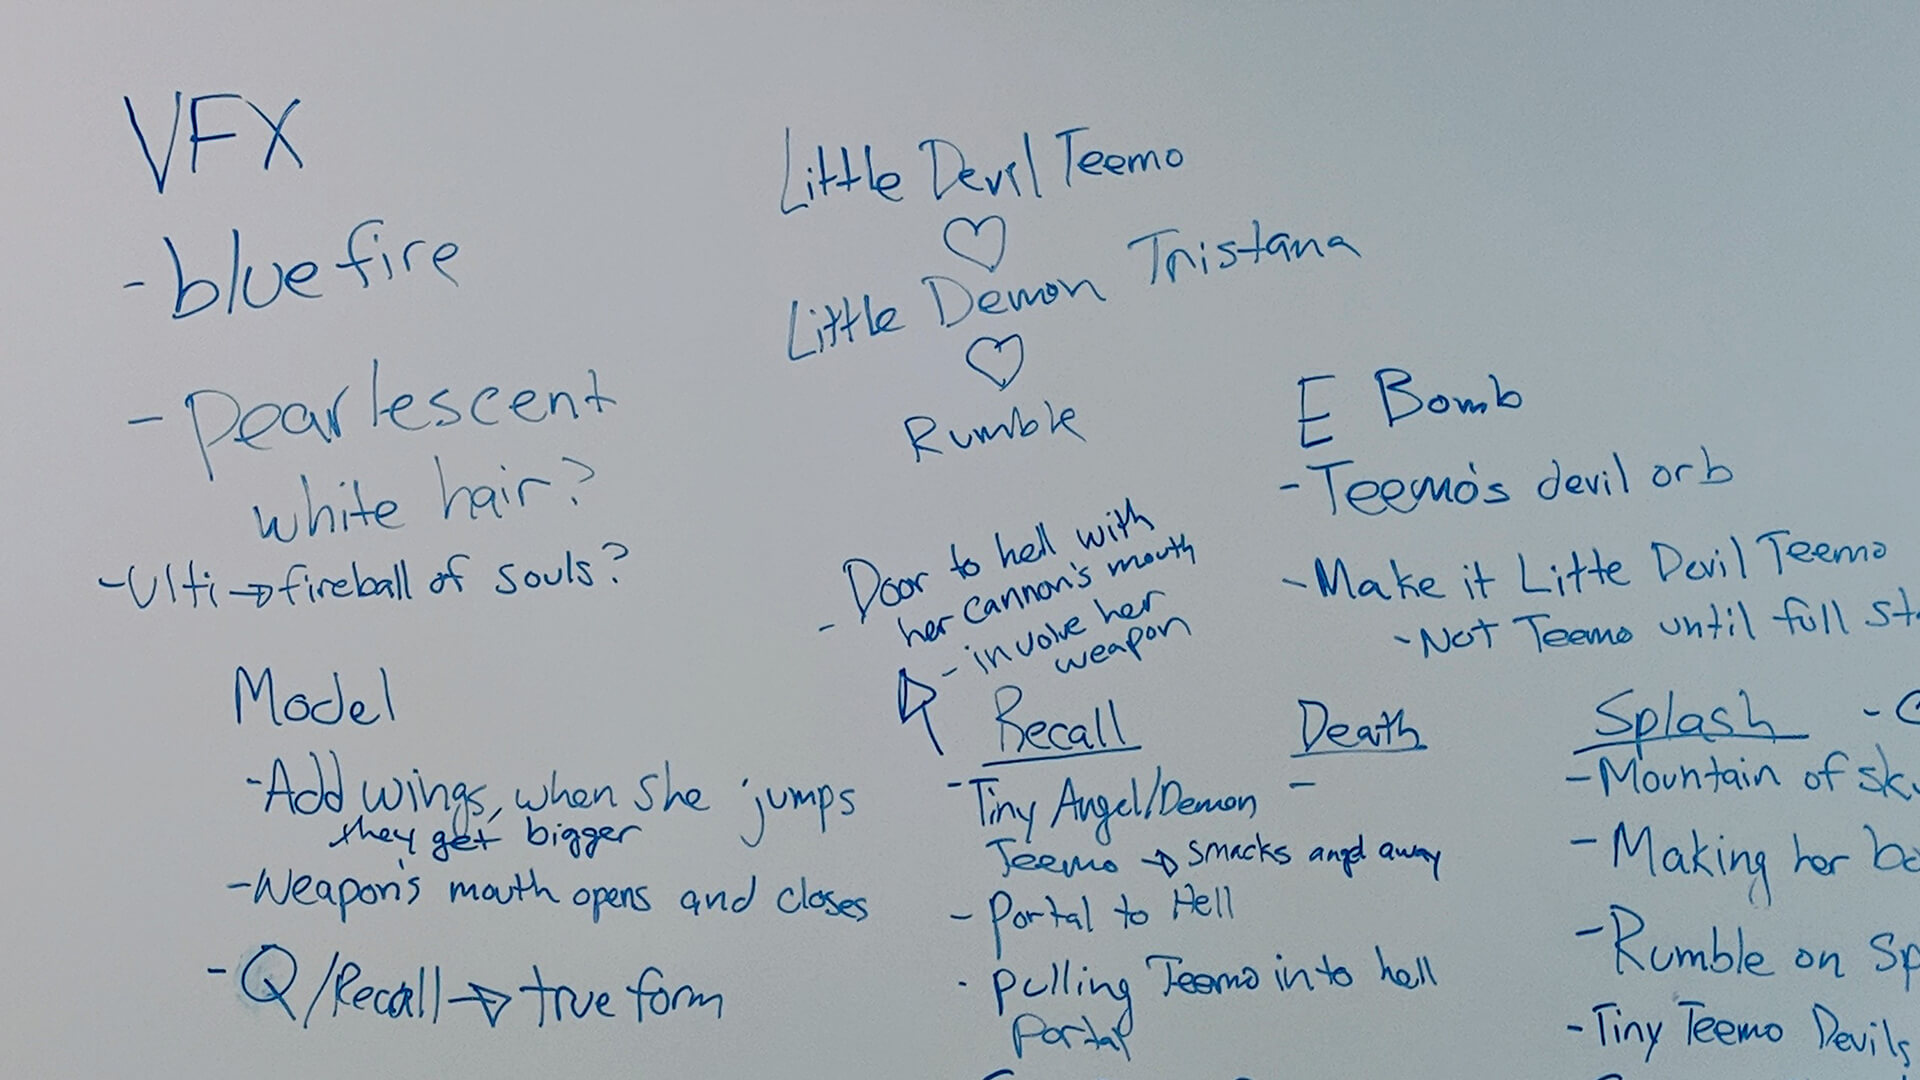 VFX
- blue fire
- pearlescent
white hair?
- Ulti → fireball of souls?
Model
- Add wings, when she jumps
they get bigger
- Weapon's mouth opens and closes
- Q/Recall → true form
Little Devil Teemo
♡
Little Demon Tristana
♡
Rumble
- Door to hell with
her cannon's mouth
- involve her
weapon
Recall
- Tiny Angel/Demon
Teemo → smacks angel away
- Portal to Hell
- pulling Teemo into hell
portal
Death
-
E Bomb
- Teemo's devil orb
- Make it Litte Devil Teemo
- Not Teemo until full
Splash
- Mountain of
- Making her
- Rumble on
- Tiny Teemo Devils